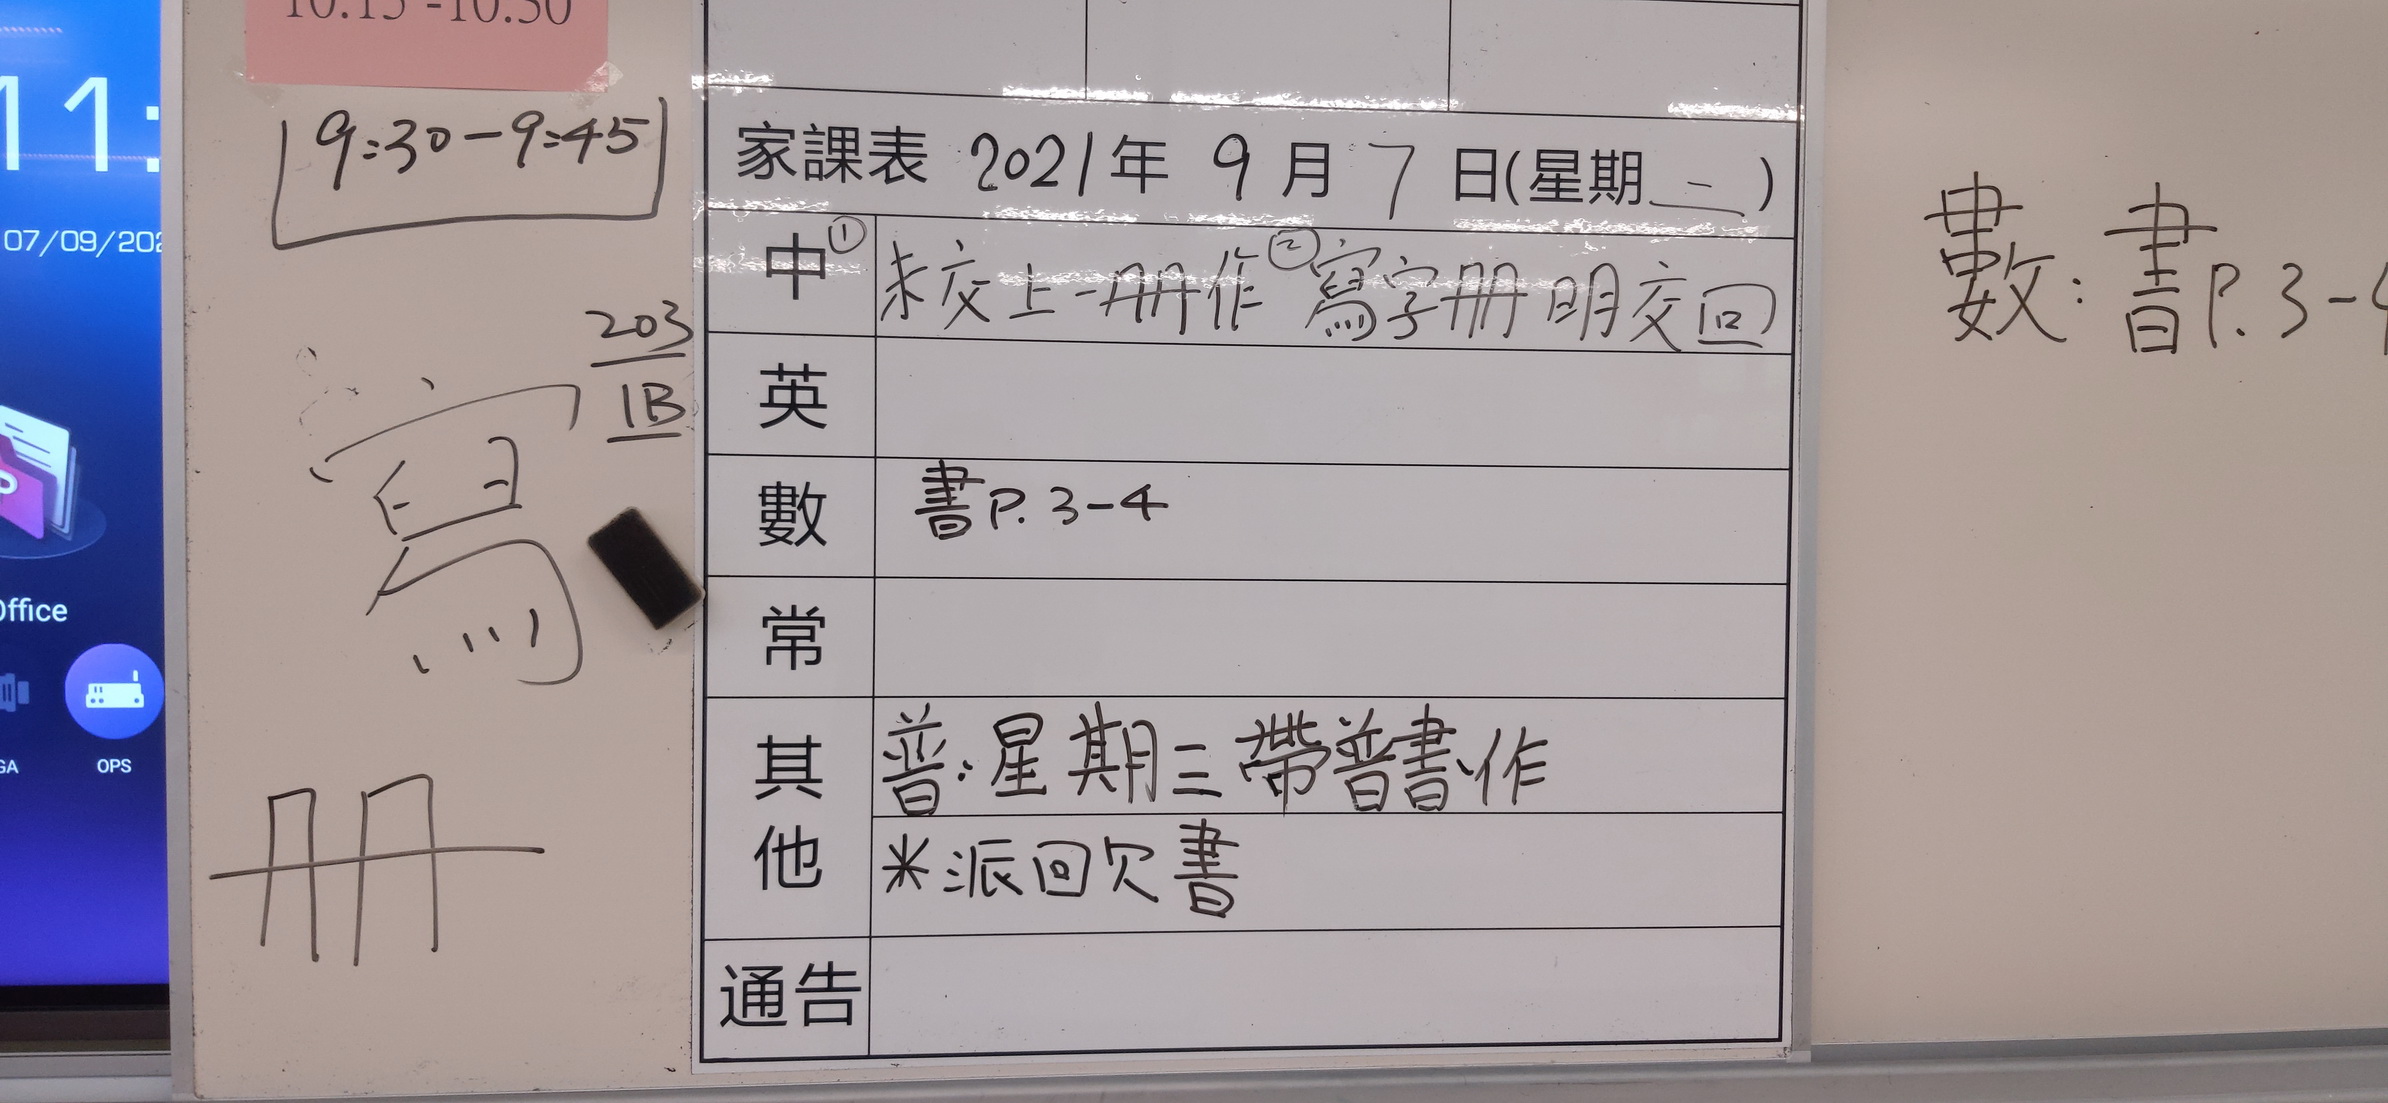 10:15 -10:30
11:
07/09/202
Office
GA
OPS
9:30-9:45
203
1B
寫
冊
家課表 2021年 9月 7日(星期二)
中 ①未交上一冊作 ②寫字冊 明交回
英
數 書P.3-4
常
其他 普:星期三帶普書、作
*派回欠書
通告
數:書P.3-4